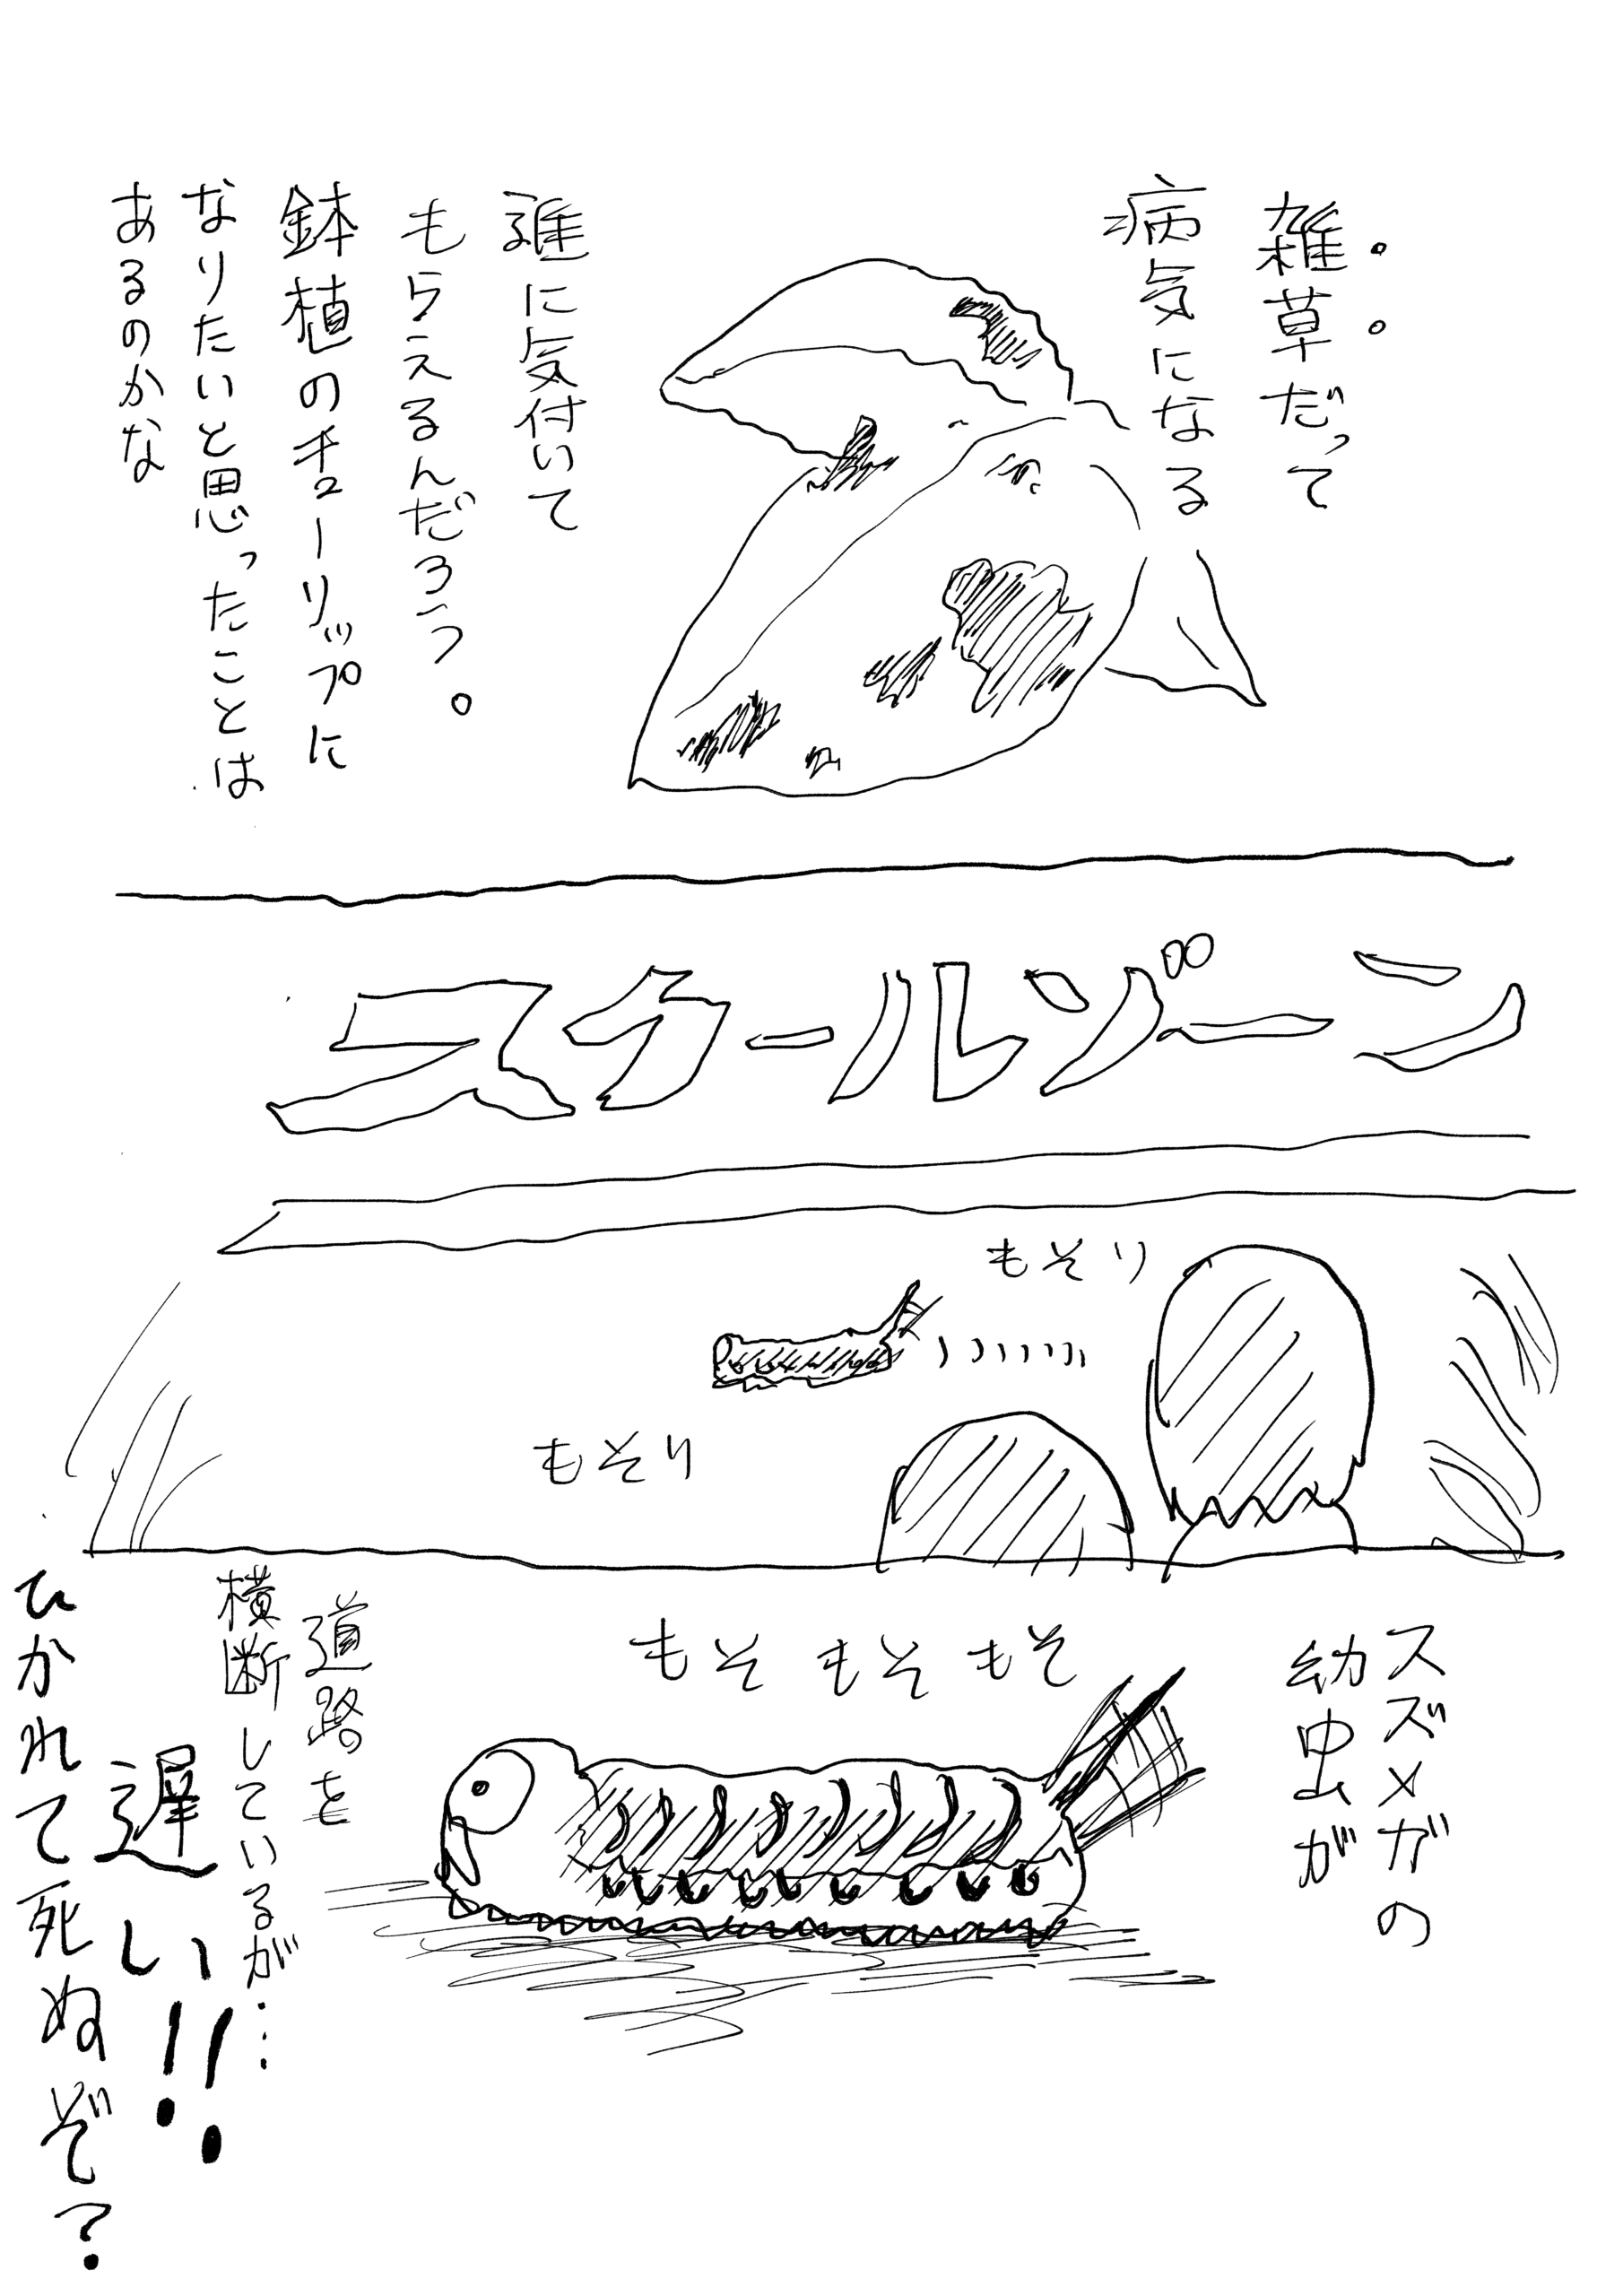 雑草だって
病気になる
誰に気付いて
もらえるんだろう。
鉢植のチューリップに
なりたいと思ったことは
あるのかな
スクールゾーン
もそり
もそり
スズメガの
幼虫が
もそもそもそ
道路を
横断しているが…
遅い!!
ひかれて死ぬぞ?